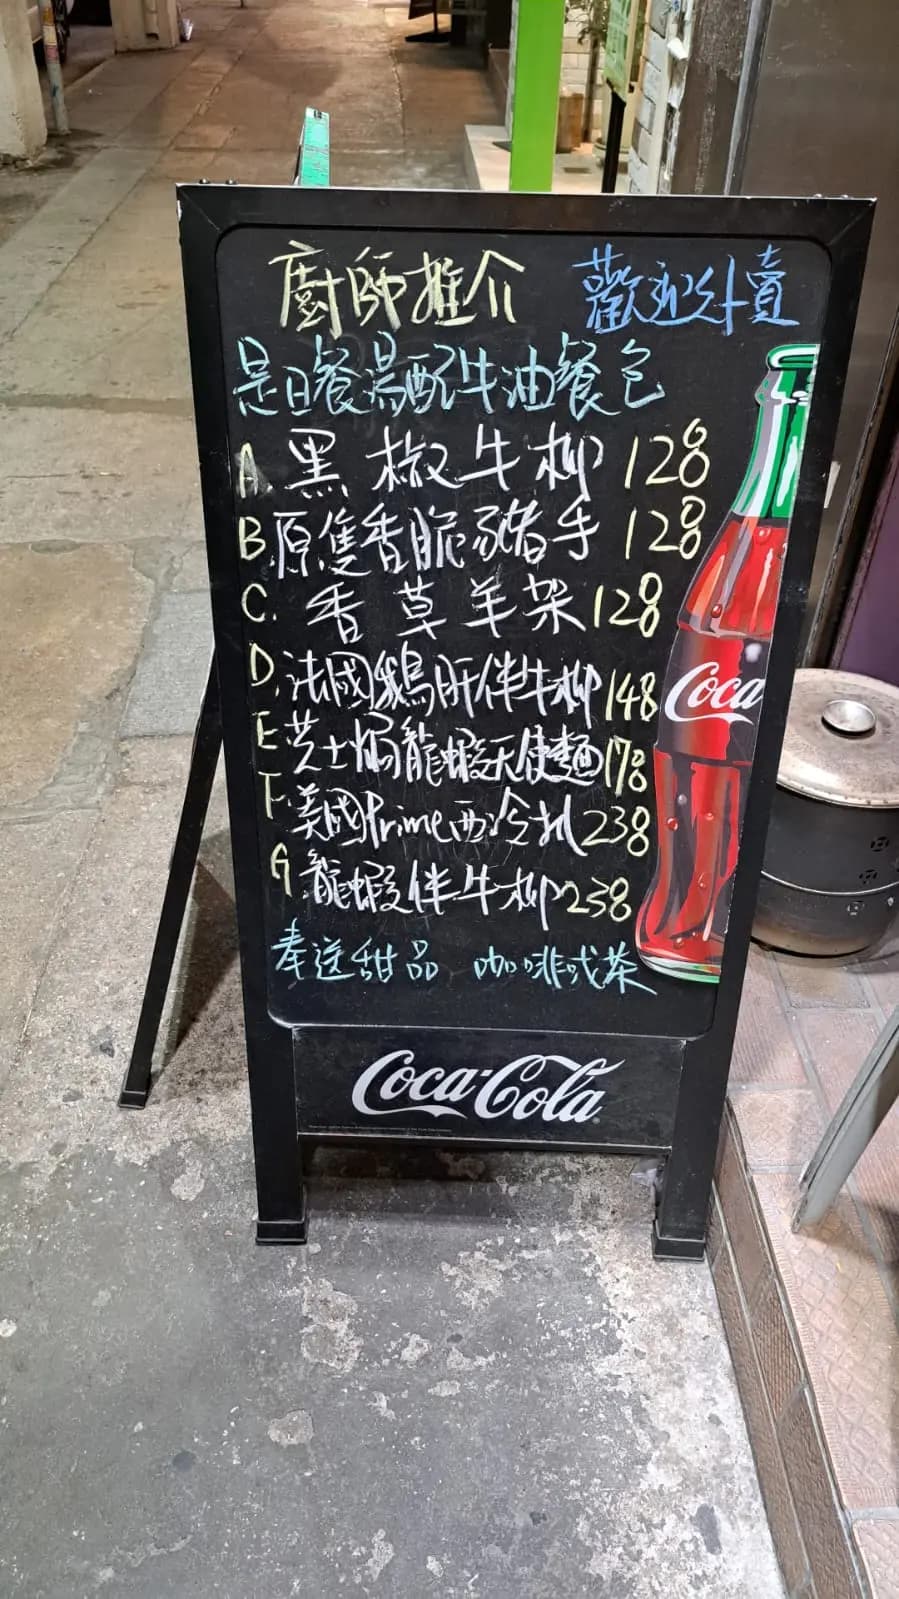 廚師推介 歡迎外賣
是日餐湯配牛油餐包
A 黑椒牛柳 128
B 原隻香脆豬手 128
C. 香草羊架 128
D. 法國鵝肝伴牛柳 148
E 芝士焗龍蝦天使麵 178
F. 美國Prime西冷扒 238
G 龍蝦伴牛柳 238
奉送甜品 咖啡或茶
Coca
Coca-Cola